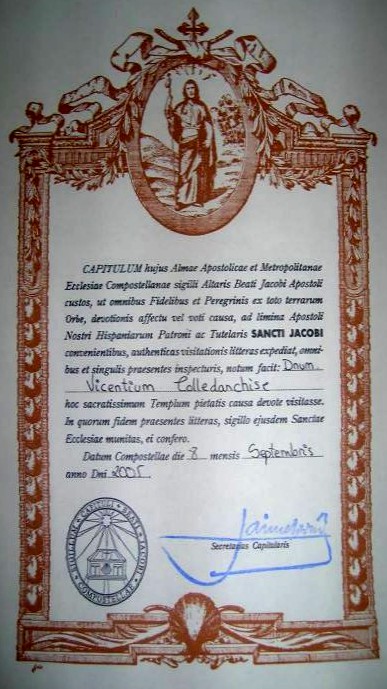 CAPITULUM hujus Almae Apostolicae et Metropolitanae
Ecclesiae Compostellanae sigilli Altaris Beati Jacobi Apostoli
custos, ut omnibus Fidelibus et Peregrinis ex toto terrarum
Orbe, devotionis affectu vel voti causa, ad limina Apostoli
Nostri Hispaniarum Patroni ac Tutelaris SANCTI JACOBI
convenientibus, authenticas visitationis litteras expediat, omni-
bus et singulis praesentes inspecturis, notum facit: Dnum.
Vicentium Colledanchise
hoc sacratissimum Templum pietatis causa devote visitasse.
In quorum fidem praesentes litteras, sigillo ejusdem Sanctae
Ecclesiae munitas, ei confero.
Datum Compostellae die 8 mensis Septembris
anno Dni 2005.
Secretarius Capitularis
SIGILLUM CAPITULI BEATI JACOBI
COMPOSTELLAE